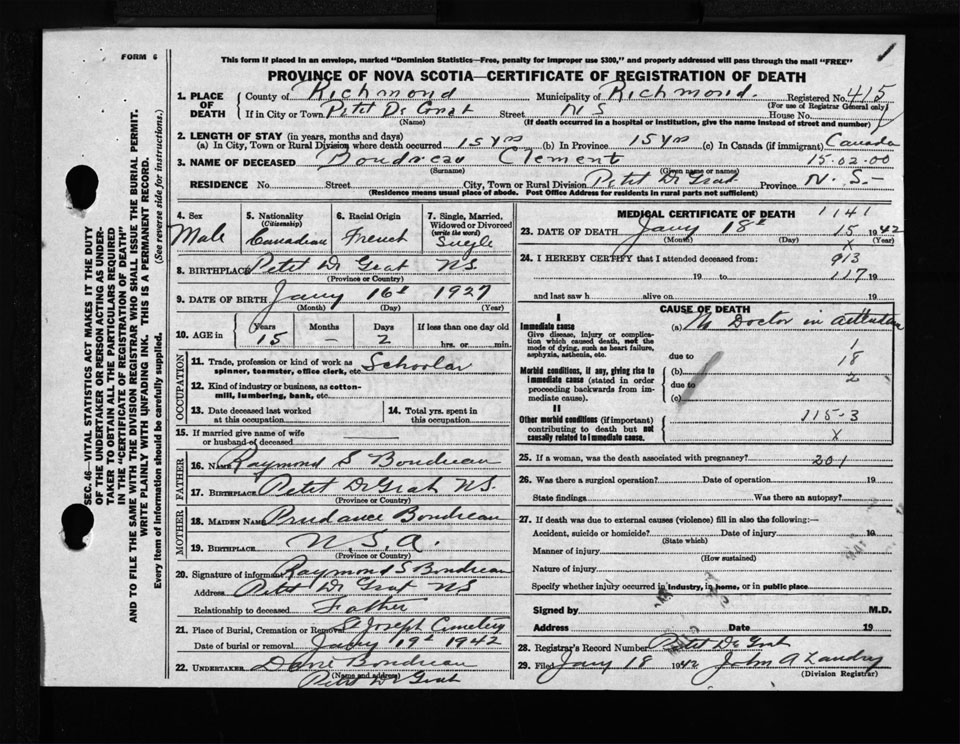 FORM 6
This form if placed in an envelope, marked "Dominion Statistics—Free, penalty for improper use $300," and properly addressed will pass through the mail "FREE"
1
PROVINCE OF NOVA SCOTIA—CERTIFICATE OF REGISTRATION OF DEATH
1. PLACE OF DEATH
County of Richmond Municipality of Richmond. Registered No. 415
(For use of Registrar General only)
If in City or Town Petit De Grat Street N S House No.
(Name) (If death occurred in a hospital or institution, give the name instead of street and number)
2. LENGTH OF STAY (in years, months and days)
(a) In City, Town or Rural Division where death occurred 15 yrs (b) In Province 15 yrs (c) In Canada (if immigrant) Canada
3. NAME OF DECEASED Boudreau Clement 15-02-00
(Surname) (Given name or names)
RESIDENCE No. Street City, Town or Rural Division Petit De Grat Province N. S.-
(Residence means usual place of abode. Post Office Address for residents in rural parts not sufficient)
4. Sex
Male
5. Nationality
(Citizenship)
Canadian
6. Racial Origin
French
7. Single, Married, Widowed or Divorced
(write the word)
Single
8. BIRTHPLACE Petit De Grat NS
(Province or Country)
9. DATE OF BIRTH Jany 16th 1927
(Month) (Day) (Year)
10. AGE in
Years Months Days If less than one day old
15 - 2 hrs. or min.
OCCUPATION
11. Trade, profession or kind of work as spinner, teamster, office clerk, etc. Schoolar
12. Kind of industry or business, as cotton-mill, lumbering, bank, etc.
13. Date deceased last worked at this occupation
14. Total yrs. spent in this occupation
15. If married give name of wife or husband of deceased
FATHER
16. NAME Raymond S Boudreau
17. BIRTHPLACE Petit De Grat NS.
(Province or Country)
MOTHER
18. MAIDEN NAME Prudance Boudreau
19. BIRTHPLACE
(Province or Country)
20. Signature of informant Raymond S Boudreau
Address Petit De Grat NS
Relationship to deceased Father
21. Place of Burial, Cremation or Removal St Joseph Cemetery
Date of burial or removal Jany 19th 1942
22. UNDERTAKER Boudreau
(Name and address)
Petit De Grat
MEDICAL CERTIFICATE OF DEATH 1141
23. DATE OF DEATH Jany 18th 15 1942
(Month) (Day) X (Year)
24. I HEREBY CERTIFY that I attended deceased from: 913
19 to 117 19
and last saw h alive on 19
CAUSE OF DEATH
I
Immediate cause
Give disease, injury or complication which caused death, not the mode of dying, such as heart failure, asphyxia, asthenia, etc.
(a) No Doctor in
1
due to 18
Morbid conditions, if any, giving rise to immediate cause (stated in order proceeding backwards from immediate cause).
(b) 2
due to
(c)
II
Other morbid conditions (if important) contributing to death but not causally related to immediate cause.
115-3
X
25. If a woman, was the death associated with pregnancy? 201
26. Was there a surgical operation? Date of operation 19
State findings Was there an autopsy?
27. If death was due to external causes (violence) fill in also the following:—
Accident, suicide or homicide? Date of injury 19
(State which)
Manner of injury
(How sustained)
Nature of injury
Specify whether injury occurred in industry, in home, or in public place
Signed by M.D.
Address Date 19
28. Registrar's Record Number Petit De Grat
29. Filed Jany 18 1942 John A Landry
(Division Registrar)
SEC. 46—VITAL STATISTICS ACT MAKES IT THE DUTY
OF THE UNDERTAKER OR PERSON ACTING AS UNDER-
TAKER TO OBTAIN ALL THE PARTICULARS REQUIRED
IN THE "CERTIFICATE OF REGISTRATION OF DEATH"
AND TO FILE THE SAME WITH THE DIVISION REGISTRAR WHO SHALL ISSUE THE BURIAL PERMIT.
WRITE PLAINLY WITH UNFADING INK. THIS IS A PERMANENT RECORD.
Every item of information should be carefully supplied. (See reverse side for instructions.)